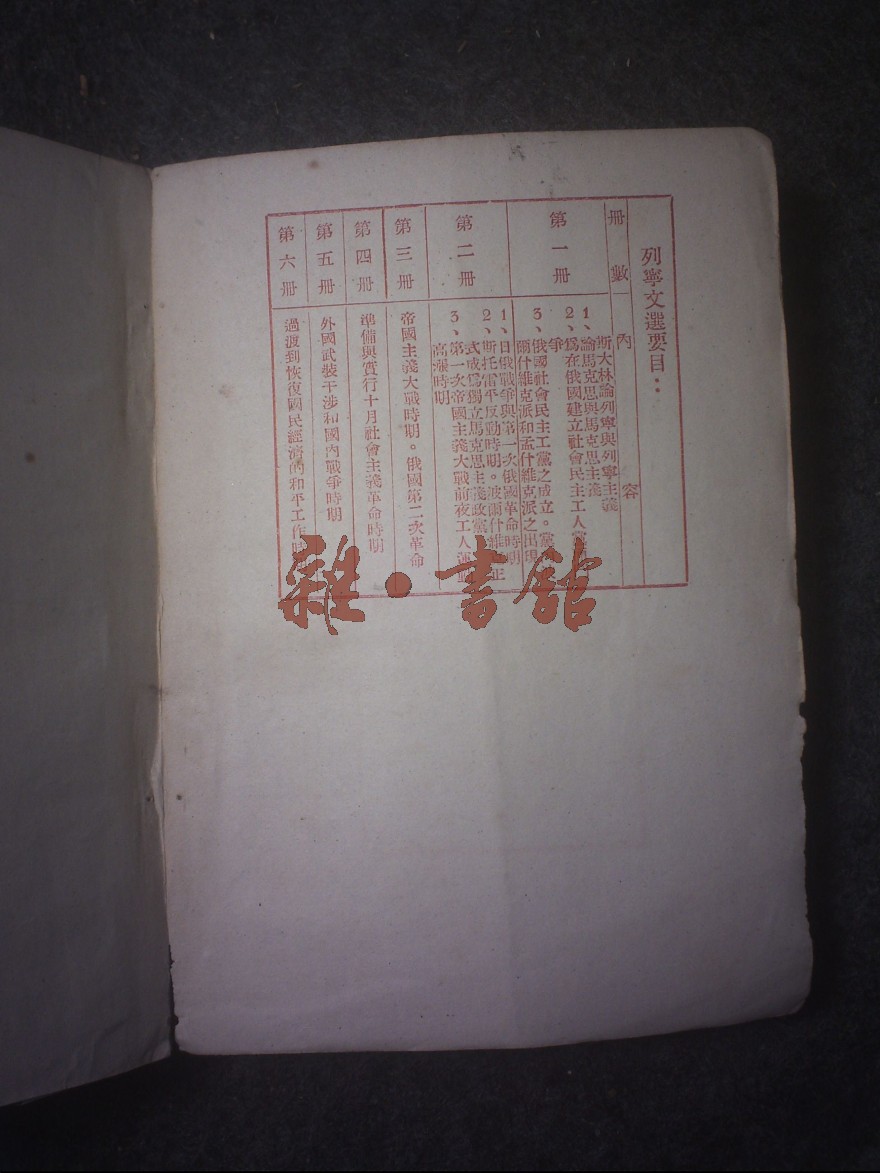 列寧文選要目：
冊數
內容
第一冊
斯大林論列寧與列寧主義
1、論馬克思與馬克思主義
2、爲在俄國建立社會民主工人黨
爭
3、俄國社會民主工黨之成立。黨
爾什維克派和孟什維克派之出現
第二冊
1、日俄戰爭與第一次俄國革命時期
2、斯托雷平反動時期。波爾什維正
式成爲獨立馬克思主義政黨
3、第一次帝國主義大戰前夜工人運動
高漲時期
第三冊
帝國主義大戰時期。俄國第二次革命
第四冊
準備與實行十月社會主義革命時期
第五冊
外國武裝干涉和國內戰爭時期
第六冊
過渡到恢復國民經濟的和平工作時
雜·書館